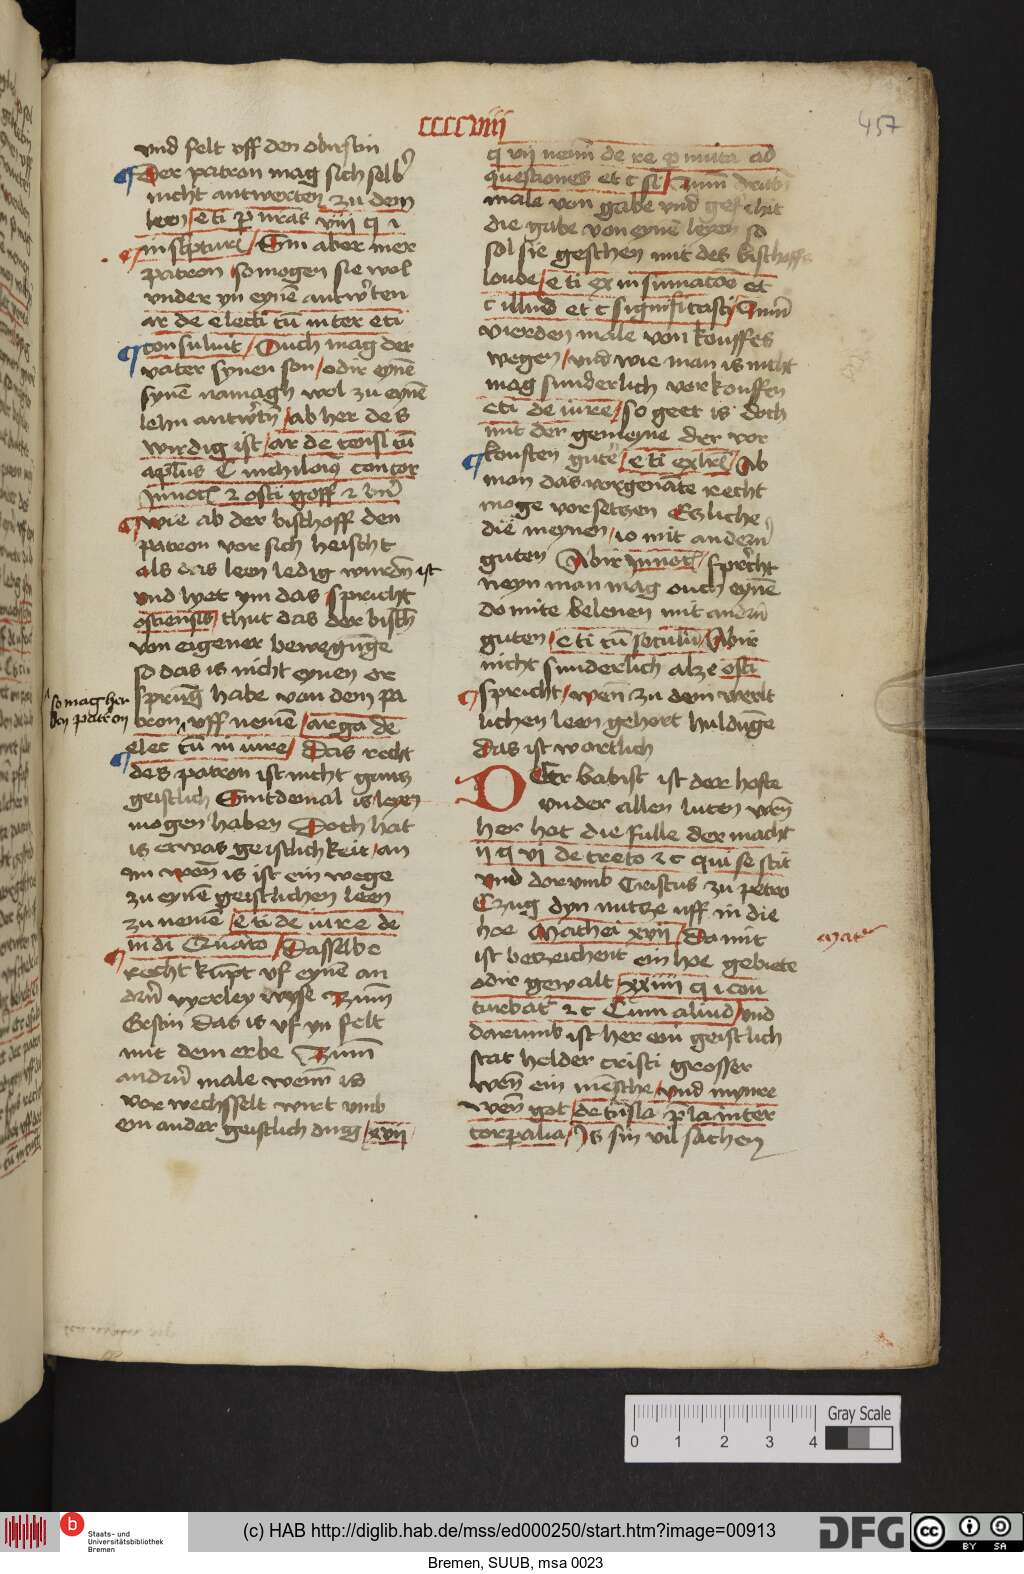 ccccviij
457
vnd felt vff den obirstin
Der patron mag sich selbˀ
nicht antwerten zu dem
leen / et̄i ꝑ nr̄as viij q i
in sc̄pturˀ / Sin aber mer
patron so mogen sie wol
vnder yn eynē antwˀten
ar de electi cū inter et̄i
consuluit / Ouch mag der
vater synen son / odir eynē
synē namagh wol zu eynē
lehn antwˀtn̄ / ab her des
wirdig ist / ar de consi cū
apl̄us C nichilomꝰ concor
Innocˀ ⁊ osti goff ⁊ b̄nˀ
wie ab der bischoff den
patron vor sich heischt
als das leen ledig wurdn̄ ist
vnd lyet ym das spricht
ostiensis / thut das der bisch
von eigener bewegūge
so das is nicht eynen or
so mag her
den patron
sprūg habe von dem pa
tron vff nemē / ar ga de
elec cū in iure / Das recht
des patron ist nicht gancz
geistlich Sintdemal is leyen
mogen haben Doch hat
is etwas geistlichkeit / an
im wen̄ is ist ein wege
zu eynē geistlichen leen
zu nemē / et̄i de iure de
in di Quarto / Dasselbe
recht kūpt vf eynē an
drn̄ vyerley wyse Zum̄
Erstin das is vf yn felt
mit dem erbe Zum̄
andrn̄ male wenn is
vor wechsselt wirt vmb
ein ander geistlich ding / xvij
q vij nemˀ de re ꝑmuta ad
questiones et c si / Zum̄ drittn̄
male von gabe vnd geschit
die gabe von eynē leyen so
sol sie geschen mit des bischoffs
loube / et̄i ex insinuacōe et
c illud et c significasti / Zum̄
vierden male von kouffes
wegen / vnd wie man is nicht
mag sunderlich vorkouffen
et̄i de iure / so geet is doch
mit der gemeyne der vor
kousten gutˀ / et̄i exlrīs / Ab
man das vorgenāte recht
moge vorsetzen Etzliche
die meynen / io mit andern̄
guten Abir Innocˀ / sprˀcht
neyn man mag ouch eynē
do mite belenen mit andrn̄
guten / et̄i cū seculū / Abir
nicht sunderlich alze osti
spricht / wen̄ zu dem werlt
lichen leen gehort huldūge
das ist wortlich
DEr babist ist der hoste
vnder allen luten wen̄
her hat die fulle der macht
ij q vj decreto ⁊ c qui se scit
vnd dorvmb Cristus zu petro
Czug dyn nitcze uff in die
hoe Mathei xvij / Domit
Matˀ
ist betzeichent ein hoe gebiete
odir gewalt / xxiiij q i con
turbatˀ ⁊ c Cum aliud / vnd
dorumb ist her ein geistlich
stat helder cristi grosser
wen̄ ein mēsche / vnd mynre
wen̄ got / de trāsla ꝑla inter
corꝑalia / Is sin vil sachen
Gray Scale
0 1 2 3 4
b
Staats- und
Universitätsbibliothek
Bremen
(c) HAB http://diglib.hab.de/mss/ed000250/start.htm?image=00913
DFG
cc
BY SA
Bremen, SUUB, msa 0023